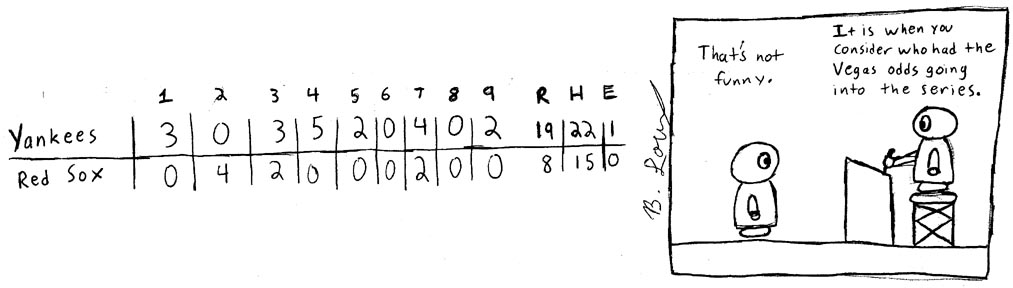 1 2 3 4 5 6 7 8 9 R H E
Yankees 3 0 3 5 2 0 4 0 2 19 22 1
Red Sox 0 4 2 0 0 0 2 0 0 8 15 0
B.
That's not
funny.
It is when you
consider who had the
Vegas odds going
into the series.